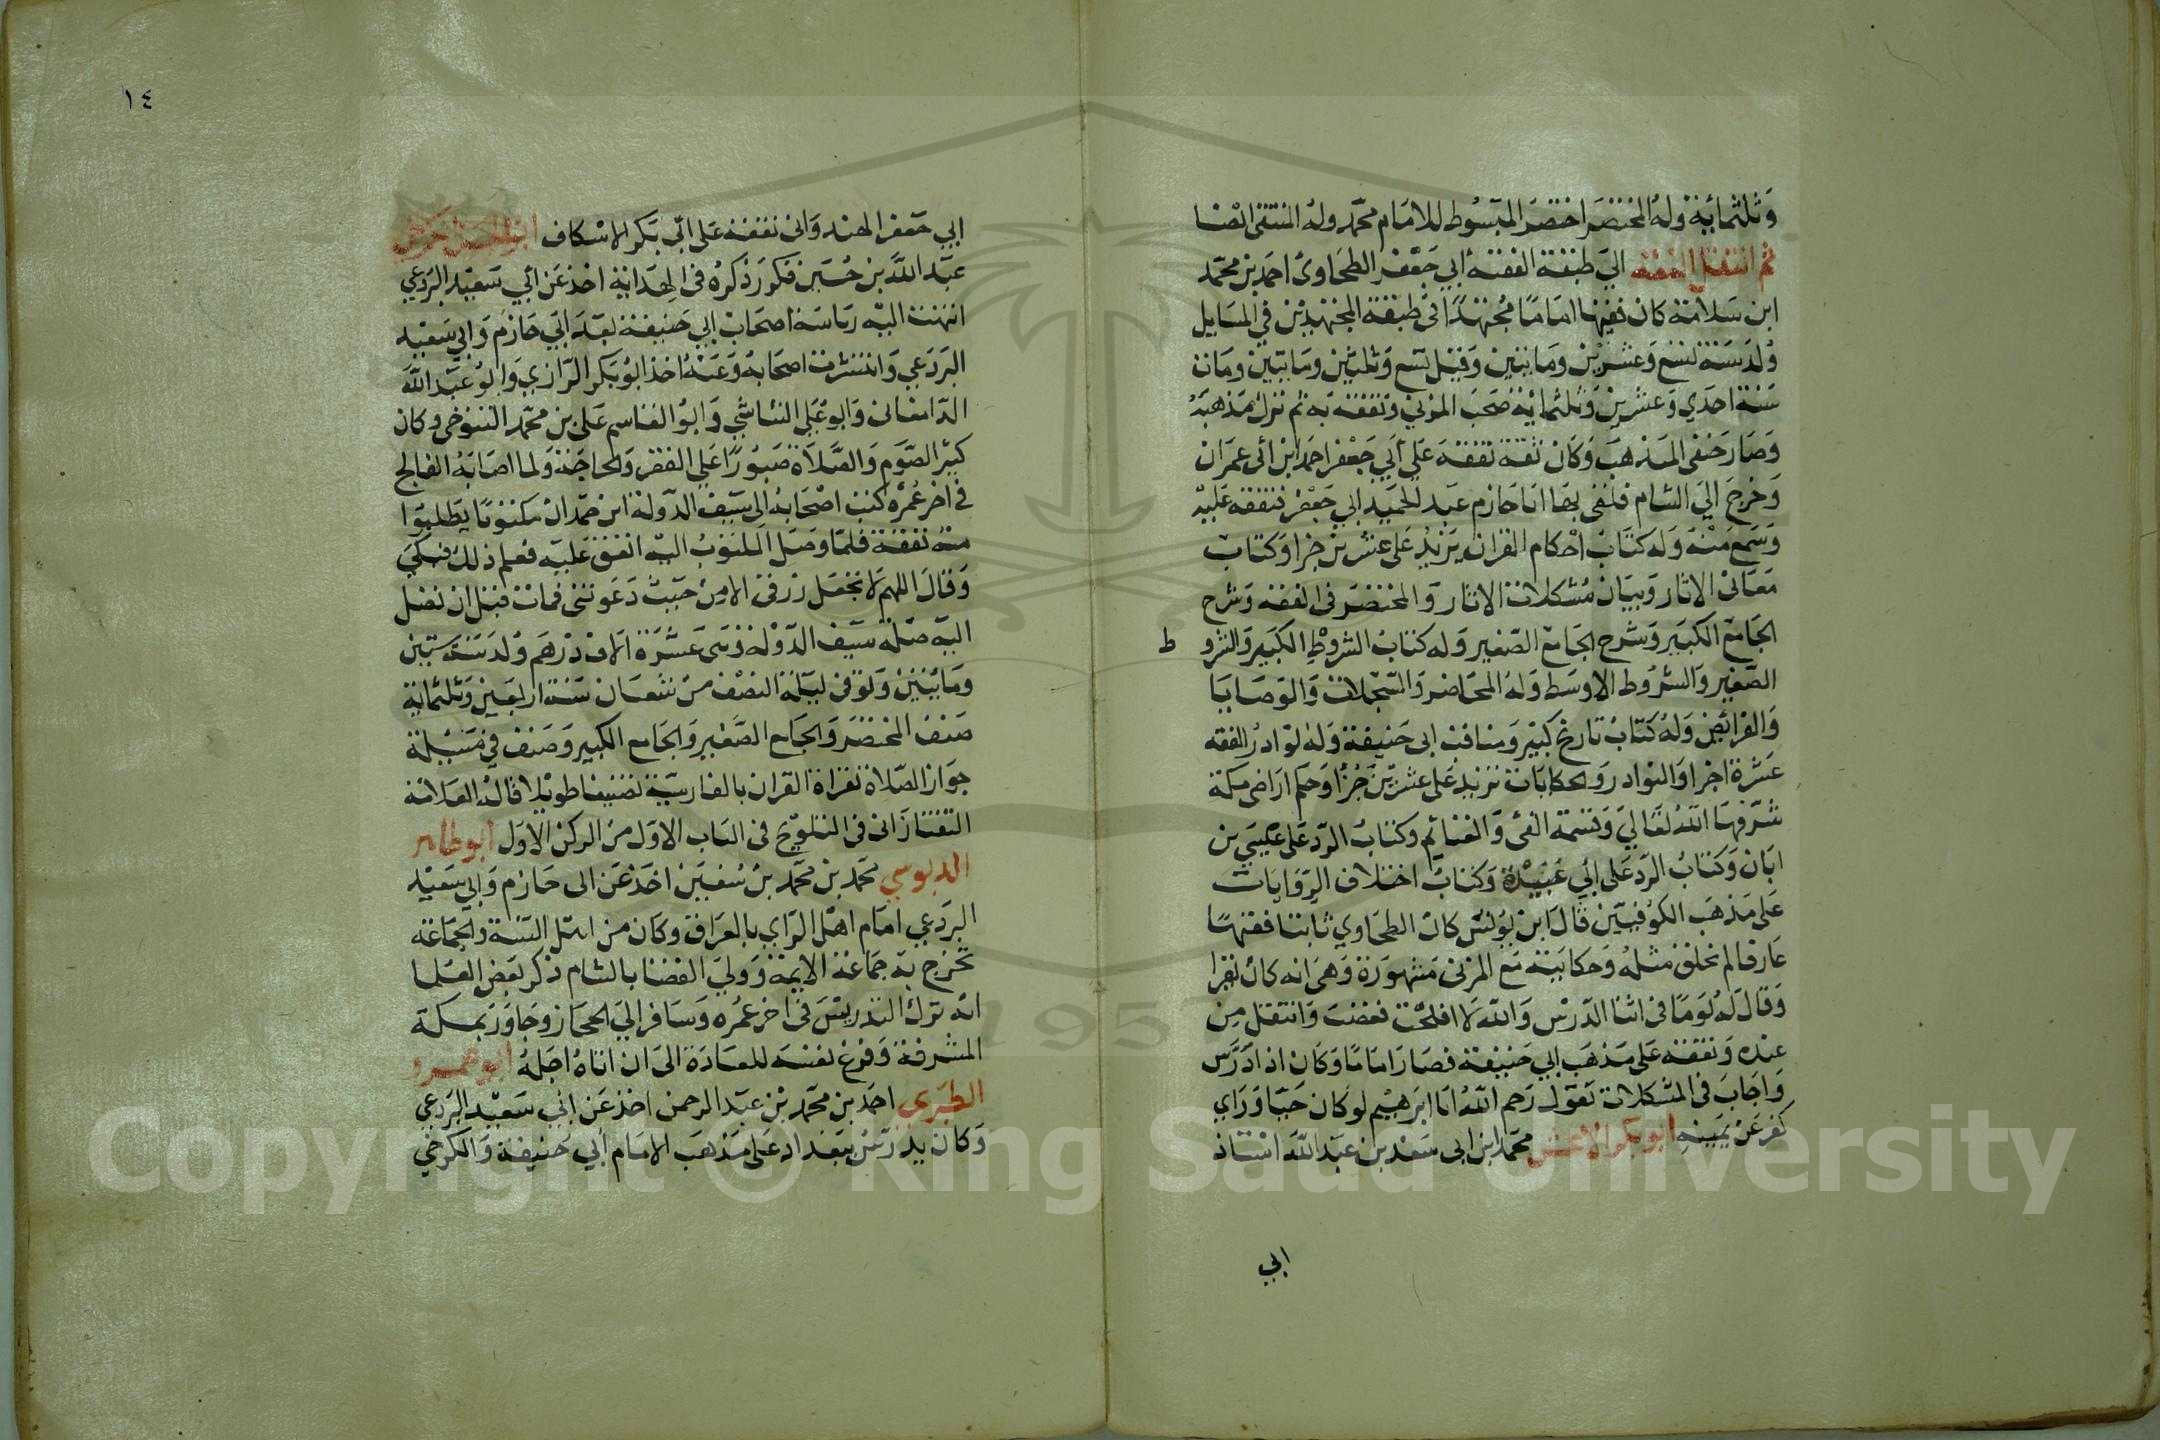 وثلثمائة وله المختصر اختصر المبسوط للامام محمد وله المنتقى ايضا
ثم انتقل الفقه الي طبقة الفقه ابي جعفر الطحاوى احمد بن محمد
ابن سلامة كان فقيها اماما مجتهدا فى طبقة المجتهدين في المسايل
ولد سنة تسع وعشرين ومايتين وقيل تسع وثلثين ومايتين ومات
سنة احدي وعشرين وثلثماية صحب المزني وتفقه به ثم ترك مذهبه
وصار حنفى المذهب وكان ثقة تفقه علي ابي جعفر احمد ابن ابى عمران
وخرج الي الشام فلقى بها ابا حازم عبد الحميد ابي جعفر فتفقه عليه
وسمع منه وله كتاب احكام القران يزيد على عشرين جزا وكتاب
معانى الاثار وبيان مشكلات الاثار والمختصر فى الفقه وشرح
الجامع الكبير وشرح الجامع الصغير وله كتاب الشروط الكبير والشرو ط
الصغير والشروط الاوسط وله المحاضر والسجلات والوصايا
والفرائض وله كتاب تاريخ كبير ومناقب ابى حنيفة وله نوادر الفقه
عشرة اجزا والنوادر والحكايات تزيد على عشرين جزأ وحكم اراضى مكة
شرفها الله تعالي وقسمة الفئ والغنائم وكتاب الرد على عيسي بن
ابان وكتاب الرد على ابي عبيدة وكتاب اختلاف الروايات
على مذهب الكوفيين قال ابن يونس كان الطحاوي ثابتا فقيها
عارفا لم يخلف مثله وحكايته مع المزنى مشهورة وهى انه كان يقرا
وقال له يوما فى اثنا الدرس والله لا افلحت فغضب وانتقل من
عنده وتفقه على مذهب ابي حنيفة فصار اماما وكان اذا درس
واجاب فى المشكلات يقول رحم الله ابا ابرهيم لو كان حيا وراي
كفر عن يمينه ابو بكر الاعمش محمد ابن ابى سعد بن عبد الله استاذ
ابي
١٤
ابي جعفر الهندوانى تفقه على ابي بكر الاسكاف ابو الحسن كرخى
عبد الله بن حسين تكرر ذكره فى الهداية اخذ عن ابي سعيد البردعي
انتهت اليه رياسة اصحاب ابي حنيفة بعد ابي حازم وابي سعيد
البردعي وانتشرت اصحابه وعنه اخذ ابو بكر الرازي وابو عبد الله
الدامغانى وابو على الشاشي وابو القاسم على بن محمد التنوخى وكان
كبير الصوم والصلاة صبورا على الفقر والحاجة ولما اصابه الفالج
فى اخر عمره كتب اصحابه الى سيف الدولة ابن حمدان مكتوبا يطلبوا
منه نفقة فلما وصل المكتوب اليه انفق عليه فعلم ذلك فبكي
وقال اللهم لا تجعل رزقى الا من حيث دعوتنى فمات قبل ان تصل
اليه صلة سيف الدولة وهى عشرة الاف درهم ولد سنة ستين
ومايتين وتوفى ليلة النصف من شعبان سنة اربعين وثلثماية
صنف المختصر والجامع الصغير والجامع الكبير وصنف في مسيلة
جواز الصلاة بقراة القران بالفارسية تصنيفا طويلا قاله العلامة
التفتازانى فى التلويح فى الباب الاول من الركن الاول ابو طاهر
الدبوسي محمد بن محمد بن سفين اخذ عن ابى حازم وابي سعيد
البردعي امام اهل الراي بالعراق وكان من اهل السنة والجماعة
تخرج به جماعة الايمة وولي القضا بالشام ذكر بعض العلما
انه ترك التدريس فى اخر عمره وسافر الي الحجاز وجاور بمكة
المشرفة وفرغ نفسه للعبادة الى ان اتاه اجله ابو عمرو
الطبري احمد بن محمد بن عبد الرحمن اخذ عن ابي سعيد البردعي
وكان يدرس ببغداد على مذهب الامام ابي حنيفة والكرخي
1957
Copyright © King Saud University